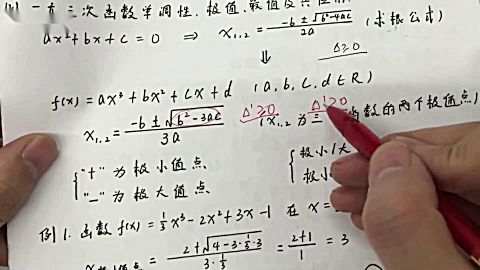 一元三次函数单调性、极值、
ax²+bx+c=0 ⇒ x₁,₂= -b±√b²-4ac / 2a (求根公式)
⇓ Δ≥0
f(x)=ax³+bx²+cx+d (a,b,c,d∈R)
x₁,₂= -b±√b²-3ac / 3a Δ'≥0 Δ'≥0
(x₁,₂为三 函数的两个极值点)
"+"为极小值点、
"-"为极大值点、
极小/大
极小
例1.函数f(x)=1/3x³-2x²+3x-1 在 x=
= 2+√4-3·1/3·3 / 3·1/3 = 2+1 / 1 = 3